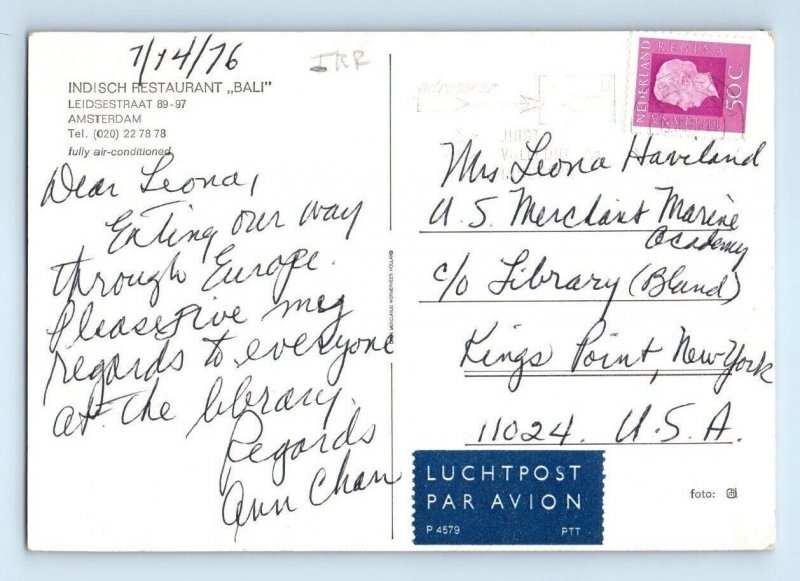 7/14/76
INDISCH RESTAURANT „BALI"
LEIDSESTRAAT 89-97
AMSTERDAM
Tel. (020) 22 78 78
fully air-conditioned
Dear Leona,
Eating our way
through Europe.
Please give my
regards to everyone
at the library.
Regards
Ann Chan
NEDERLAND
REGINA
50C
JUIST
Mrs Leona Haveland
U.S. Merchant Marine
Academy
c/o Library (Bland)
Kings Point, New York
11024. U.S.A.
LUCHTPOST
PAR AVION
P 4579 PTT
foto: